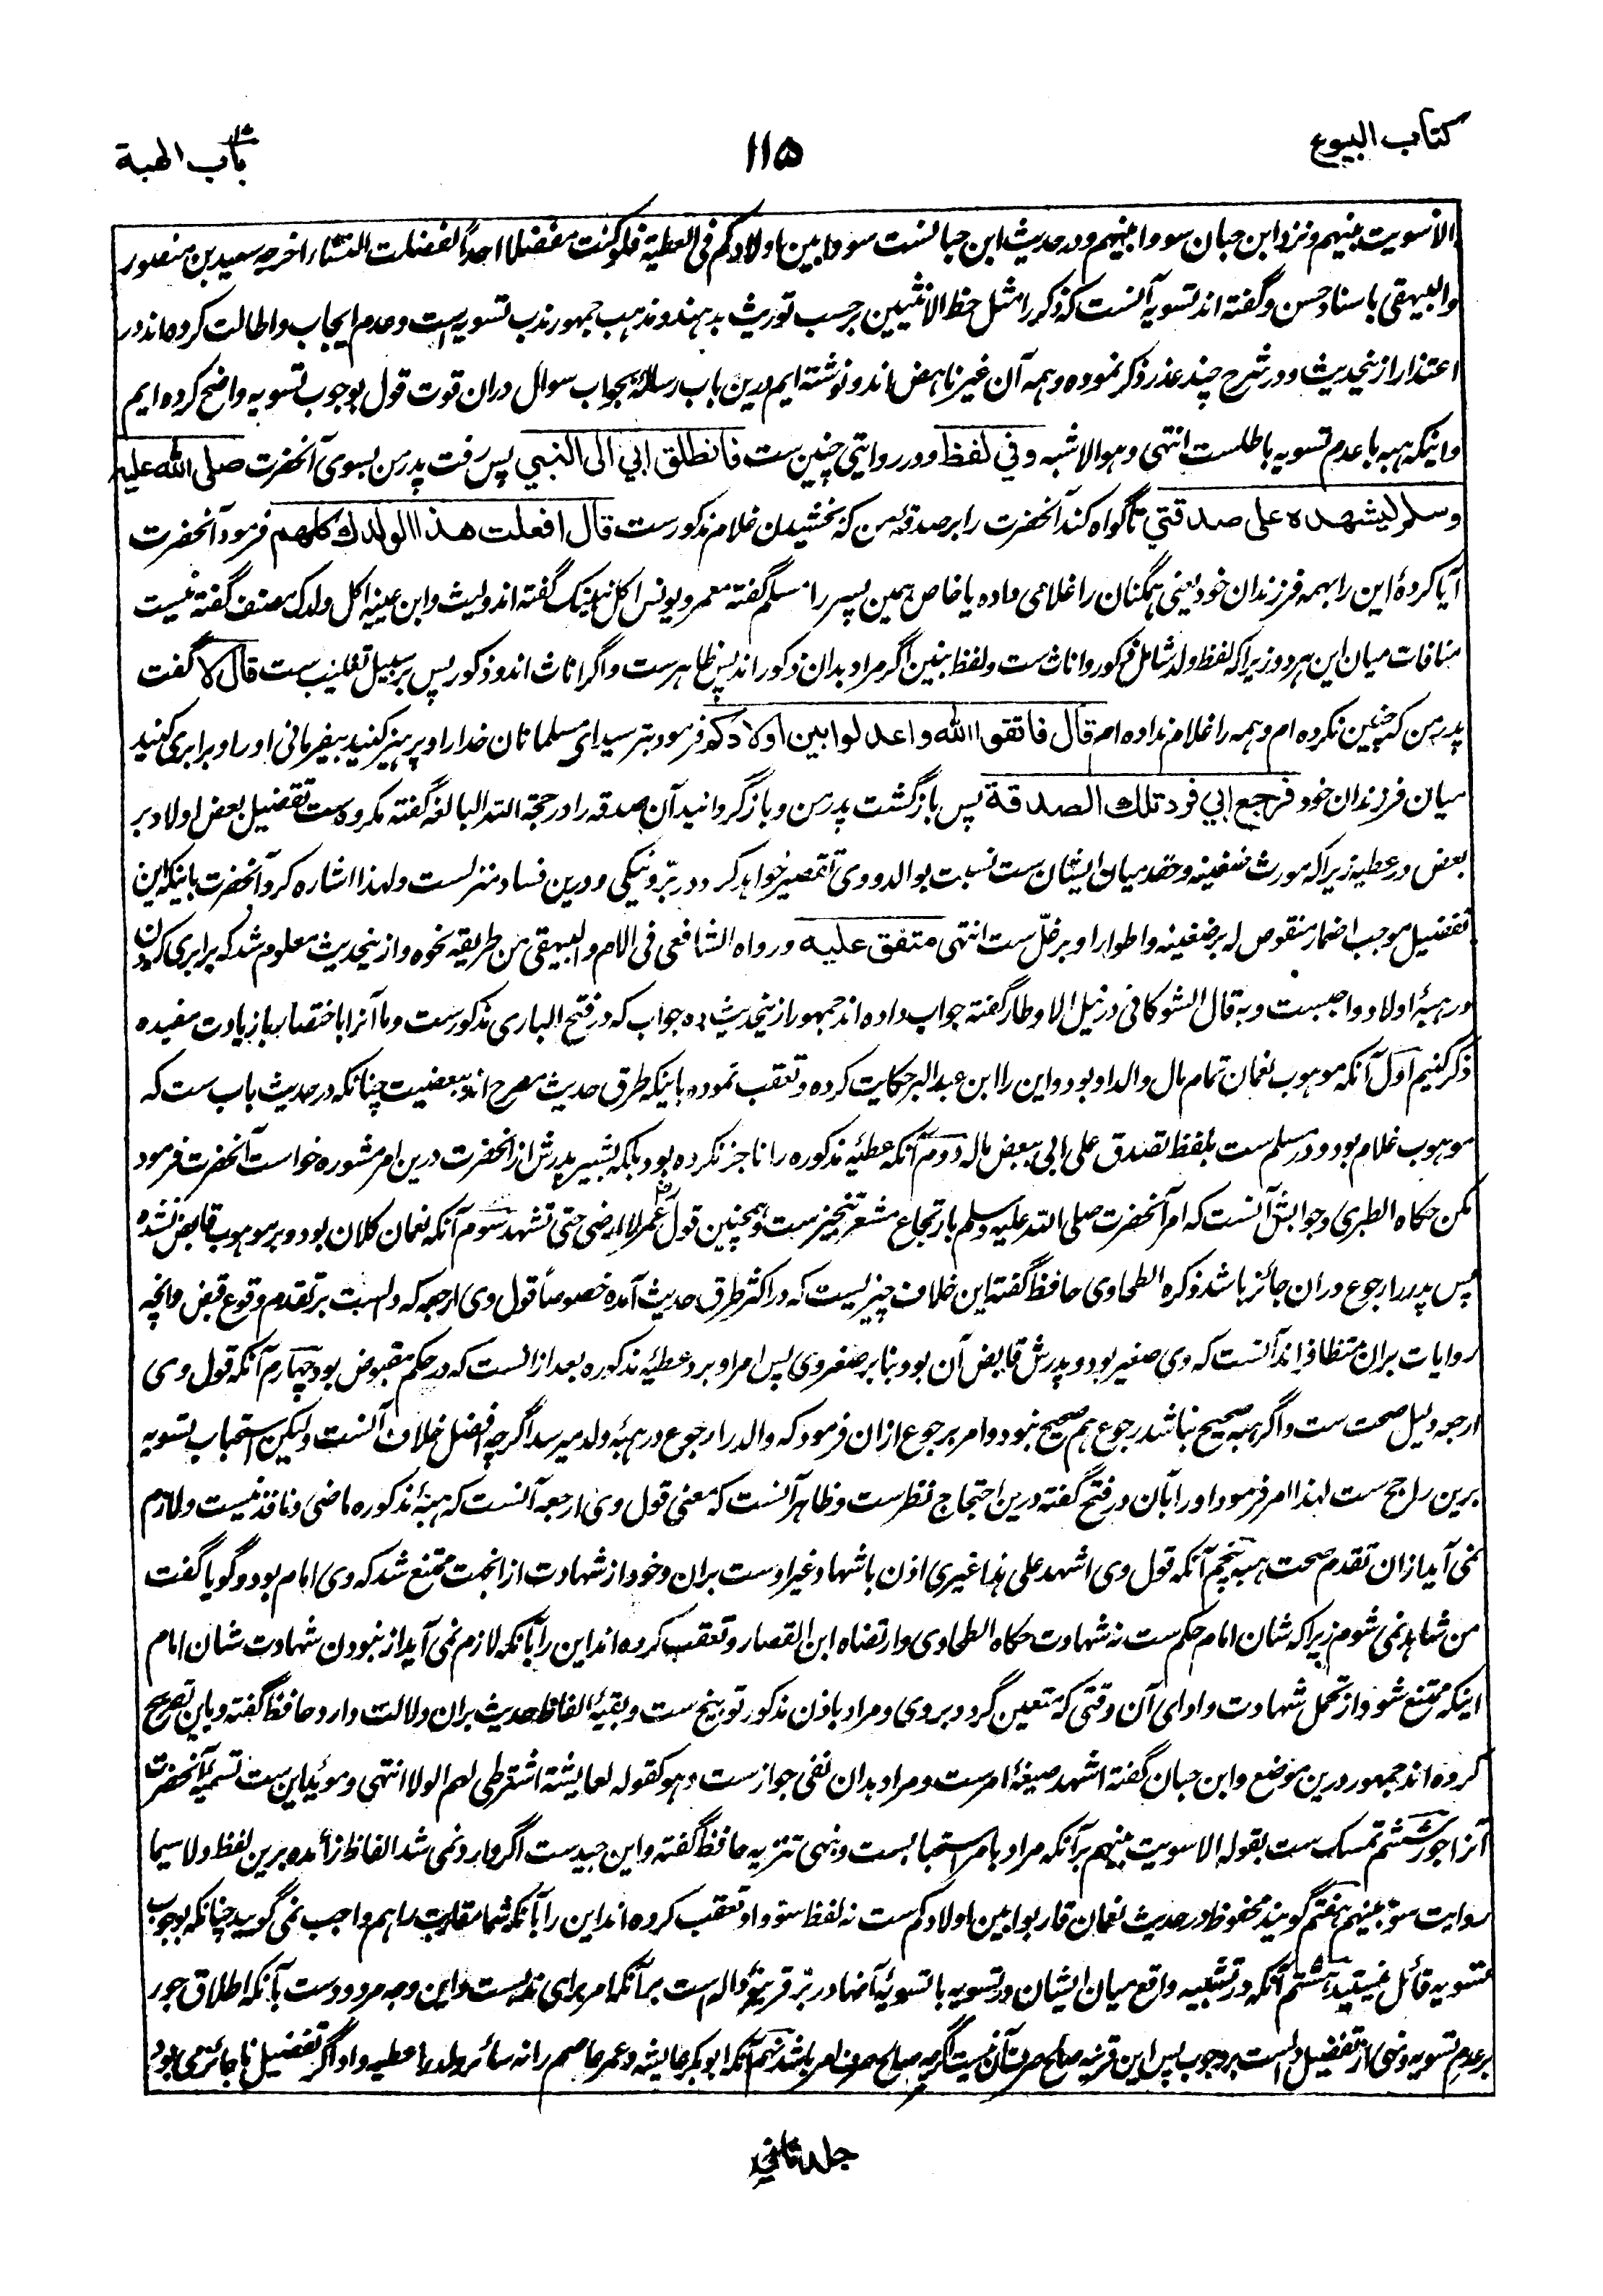 كتاب البيوع
۱۱۵
باب الهبة
الاسويت بينهم ونزد ابن حبان سووا بينهم ودر حديث ابن حبانست سووا بين اولادكم فى العطية فلو كنت مفضلا احدا لفضلت النساء اخرجه سعيد بن منصور
والبيهقى باسناد حسن وگفته اند تسويه آنست كه ذكر را مثل حظ الانثيين برحسب توريث بدهند ومذهب جمهور ندب تسويه است وعدم ايجاب واطالت كرده اند در
اعتذار ازينحديث ودر شرح چند عذر ذكر نموده وهمه آن غير ناهض اند ونوشته ايم درين باب رساله بجواب سوال دران قوت قول بوجوب تسويه واضح كرده ايم
واينكه هبه با عدم تسويه باطلست انتهى وهو الاشبه وفي لفظ ودر روايتى چنين ست فانطلق ابي الى النبي پس رفت پدر من بسوى آنحضرت صلى الله عليه
وسلم ليشهده على صدقتي تا گواه كند آنحضرت را بر صدقه من كه بخشيدن غلام مذكورست قال افعلت هذا الولدك كلهم فرمود آنحضرت
آيا كردۀ اين را بهمه فرزندان خود يعنى همگنان را غلامى داده يا خاص همين پسر را مسلم گفته معمر ويونس اكل بنيك گفته اند وليث وابن عيينه اكل ولدك مصنف گفته نيست
منافات ميان اين هر دو زيراكه لفظ ولد شامل ذكور واناث ست ولفظ بنين اگر مراد بدان ذكور اند پس ظاهرست واگر اناث اند وذكور پس بر سبيل تغليب ست قال لا گفت
پدر من كه چنين نكرده ام وهمه را غلام نداده ام قال فاتقوا الله واعدلوا بين اولادكم فرمود بترسيد اى مسلمانان خدا را وپرهيز كنيد بيفرمانى او را وبرابرى كنيد
ميان فرزندان خود فرجع ابي فرد تلك الصدقة پس باز گشت پدر من وباز گردانيد آن صدقه را در حجة الله البالغه گفته مكروه ست تفضيل بعض اولاد بر
بعض در عطيه زيراكه مورث ضغينه وحقد ميان ايشان ست نسبت بوالد ووى تقصير خواهد كرد در برّ ونيكى ودرين فساد منزلست ولهذا اشاره كرد آنحضرت باينكه اين
تفضيل موجب اضمار منقوص له بر ضغينه واطوار او بر غلّ ست انتهى متفق عليه ورواه الشافعى فى الام والبيهقى من طريقه نحوه وازينحديث معلوم شد كه برابرى كردن
در هبۀ اولاد واجبست وبه قال الشوكانى در نيل الاوطار گفته جواب داده اند جمهور ازينحديث بده جواب كه در فتح البارى مذكورست وما آنرا باختصار با زيادت مفيده
ذكر كنيم اول آنكه موهوب نعمان تمام مال والد او بود واين را ابن عبد البر حكايت كرده وتعقب نموده باينكه طرق حديث مصرح اند ببعضيت چنانكه در حديث باب ست كه
موهوب غلام بود ودر مسلم ست بلفظ تصدق على ابى ببعض ماله دوم آنكه عطيۀ مذكوره را ناجز نكرده بود بلكه بشير پدرش از آنحضرت درين امر مشوره خواست آنحضرت فرمود
مكن حكاه الطبرى وجوابش آنست كه امر آنحضرت صلى الله عليه وسلم بارتجاع مشعر تنجيزست وهمچنين قول عمره لا ارضى حتى تشهد سوم آنكه نعمان كلان بود وبر موهوب قابض نشده
پس پدر را رجوع دران جائز باشد ذكره الطحاوى حافظ گفته اين خلاف چيزيست كه در اكثر طرق حديث آمده خصوصا قول وى ارجعه كه دالست بر تقدم وقوع قبض وانچه
روايات بران متظافر اند آنست كه وى صغير بود وپدرش قابض آن بود بنا بر صغر وى پس امر او برد عطيۀ مذكوره بعد ازانست كه در حكم مقبوض بود چهارم آنكه قول وى
ارجعه دليل صحت ست واگر هبه صحيح نباشد رجوع هم صحيح نبود وامر برجوع ازان فرمود كه والد را رجوع در هبۀ ولد ميرسد اگرچه افضل خلاف آنست وليكن استحباب تسويه
برين راجح ست لهذا امر فرمود او را بآن در فتح گفته درين احتجاج نظرست وظاهر آنست كه معنى قول وى ارجعه آنست كه هبۀ مذكوره ماضى ونافذ نيست ولازم
نمى آيد ازان تقدم صحت هبه پنجم آنكه قول وى اشهد على هذا غيرى اذن باشهاد غير اوست بران وخود از شهادت ازانجهت ممتنع شد كه وى امام بود وگويا گفت
من شاهد نمى شوم زيراكه شان امام حكم ست نه شهادت حكاه الطحاوى وارتضاه ابن القصار وتعقب كرده اند اين را بآنكه لازم نمى آيد از نبودن شهادت شان امام
اينكه ممتنع شود از تحمل شهادت واداى آن وقتى كه متعين گردد بروى ومراد باذن مذكور توبيخ ست وبقيۀ الفاظ حديث بران دلالت دارد حافظ گفته وباين تصريح
كرده اند جمهور درين موضع وابن حبان گفته اشهد صيغۀ امرست ومراد بدان نفى جوازست وهو كقوله لعايشة اشترطى لهم الولا انتهى ومويد اين ست تسميۀ آنحضرت
آنرا جور ششم تمسك ست بقوله الا سويت بينهم برآنكه مراد بامر استحبابست ونهى تنزيه حافظ گفته واين جيدست اگر وارد نمى شد الفاظ زائده برين لفظ ولا سيما
روايت سوّ بينهم هفتم گويند محفوظ در حديث نعمان قاربوا بين اولادكم ست نه لفظ سوّوا وتعقب كرده اند اين را بآنكه شما مقاربت را هم واجب نمى گوييد چنانكه بوجوب
تسويه قائل نيستيد هشتم آنكه در تشبيه واقع ميان ايشان در تسويه با تسويۀ آنها در برّ قرينۀ دالست برآنكه امر براى ندبست واين وجه مردودست بآنكه اطلاق جور
بر عدم تسويه ونهى از تفضيل دالست بر وجوب پس اين قرينه صالح صرف آن نيست اگرچه صالح صرف امر باشد نهم آنكه ابوبكر عايشه وعمر عاصم را نه سائر ولد را عطيه داد اگر تفضيل ناجائز مى بود
جلد ثاني